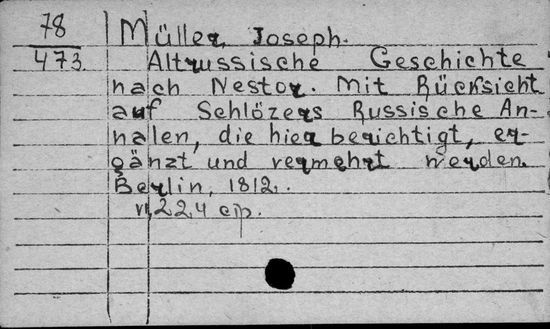 78 Müller, Joseph.
473. Altrussische Geschichte
nach Nestor. Mit Rücksicht
auf Schlözers Russische An-
nalen, die hier berichtigt, er-
gänzt und vermehrt werden.
Berlin, 1812.
VI, 224 стр.